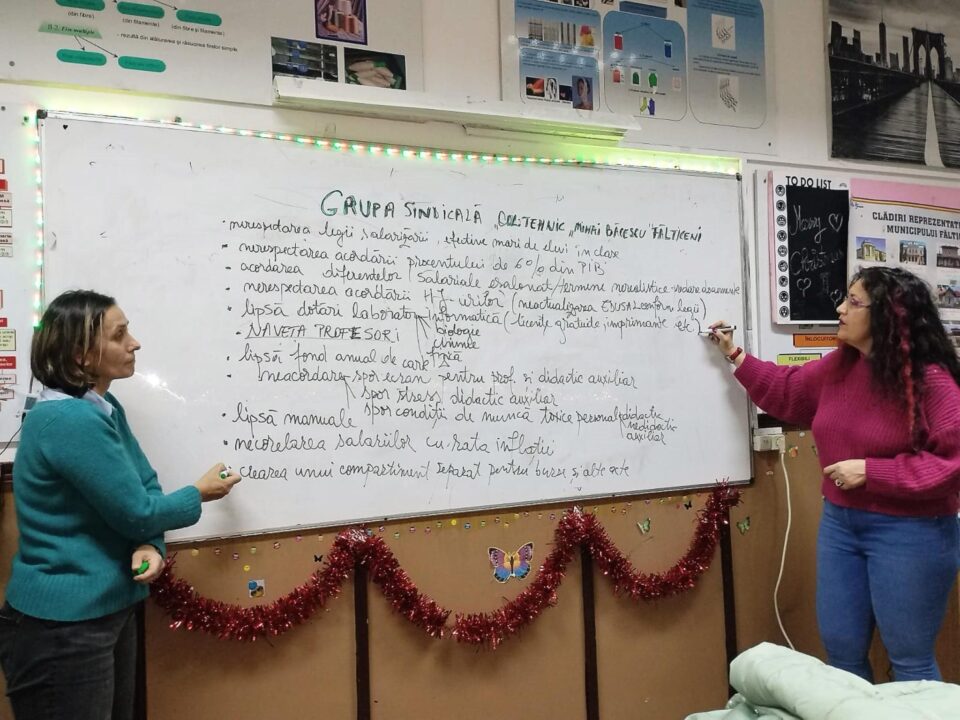 (din fibre)
(din filamente)
(din fibre și filamente)
II.2. Fire multiple
- rezultă din alăturarea și răsucirea firelor simple
GRUPA SINDICALĂ "COL. TEHNIC „MIHAI BĂCESCU" FĂLTICENI
• nerespectarea legii salarizării, efective mari de elevi în clase
• nerespectarea acordării procentului de 6% din PIB
• acordarea diferențelor salariale eșalonat/termene nerealiste
• nerespectarea acordării H.J.-urilor (neactualizarea conform legii)
• lipsă dotări laborator informatică (licențe gratuite imprimante etc)
biologie
chimie
fizică
• NAVETĂ PROFESORI
• lipsă fond anual de care
• neacordare spor ecran pentru prof. și didactic auxiliar
spor stres didactic auxiliar
spor condiții de muncă toxice personal didactic
nedidactic
auxiliar
• lipsă manuale
• necorelarea salariilor cu rata inflației
• crearea unui compartiment separat pentru burse și alte acte
TO DO LIST
Merry
Christmas
CLĂDIRI REPREZENTA
MUNICIPIULUI FĂLTI
ÎNLOCUITOR
FLEXIBILI